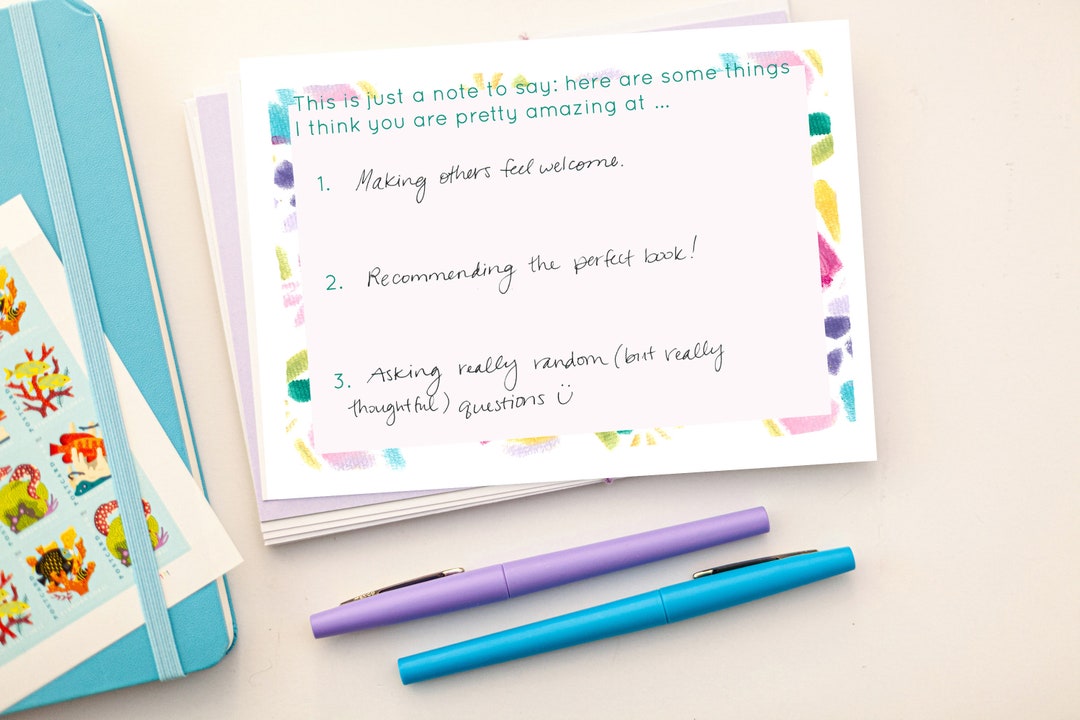 This is just a note to say: here are some things
I think you are pretty amazing at ...
1. Making others feel welcome.
2. Recommending the perfect book!
3. Asking really random (but really
thoughtful) questions Ü
POSTCARD
POSTCARD
POSTCARD
POSTCARD